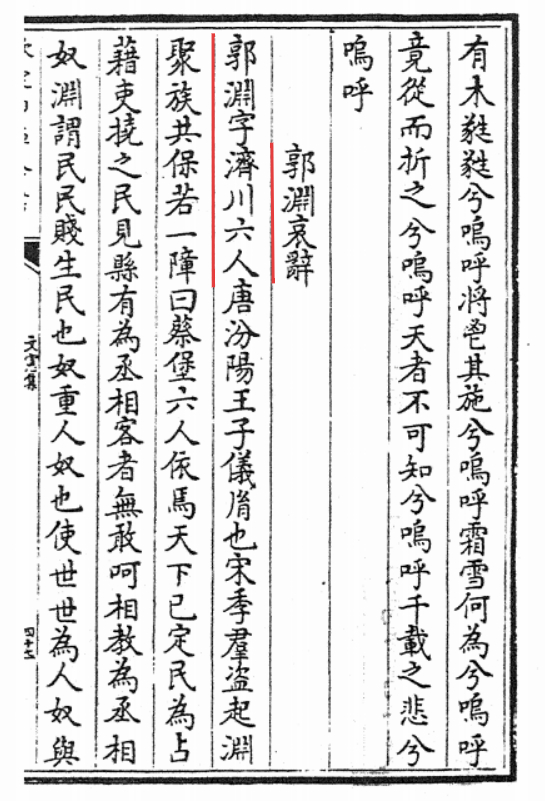 有木蕤蕤兮嗚呼将鬯其施兮嗚呼霜雪何為兮嗚呼
竟從而折之兮嗚呼天者不可知兮嗚呼千載之悲兮
嗚呼
郭淵哀辭
郭淵字濟川六人唐汾陽王子儀脩也宋季羣盗起淵
聚族共保若一障曰蔡堡六人依焉天下已定民為占
藉吏撓之民見縣有為丞相客者無敢呵相教為丞相
奴淵謂民民賤生民也奴重人奴也使世世為人奴與